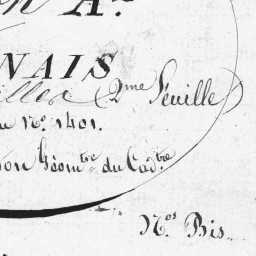 on A.
NAIS
illes (2.me Feuille)
au N.o 1401.
son Géom.tre du Cad.tre
N.os Bis.